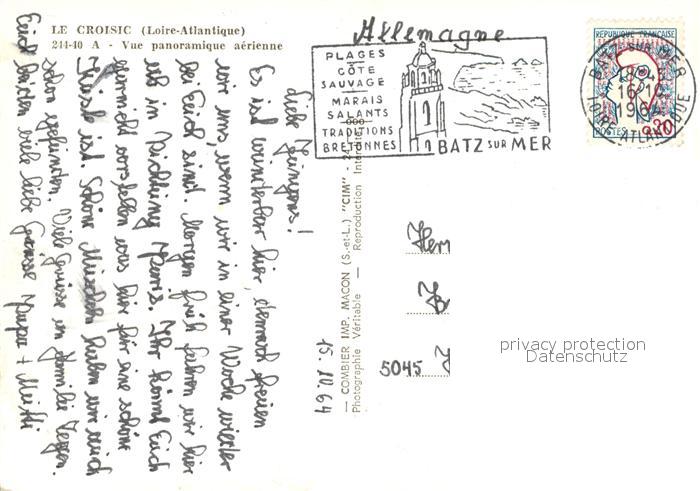 LE CROISIC (Loire-Atlantique)
244-40 A - Vue panoramique aérienne
Allemagne
PLAGES
CÔTE
SAUVAGE
MARAIS
SALANTS
TRADITIONS
BRETONNES
BATZ SUR MER
REPUBLIQUE FRANCAISE
POSTES
0,20
BATZ-SUR-MER
LOIRE ATLANTIQUE
16-10
Liebe
Es ist wunderbar hier, dennoch freuen
wir uns, wenn wir in einer Woche wieder
bei Euch sind. Morgen früh fahren wir hier
ab in Richtung Paris. Ihr könnt Euch
garnicht vorstellen was hier für eine schöne
Küste ist. Schöne Muscheln haben wir auch
schon gefunden. Viele Grüsse an Familie
Euch beiden viele liebe Grüsse Papa + Mutti
15. 10. 64
— COMBIER IMP. MACON (S.-et-L.) "CIM" —
Photographie Véritable — Reproduction Interdite
Herrn
5045
privacy protection
Datenschutz